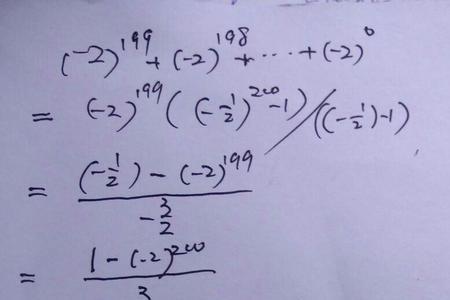 (-2)^199 + (-2)^198 + ⋯ + (-2)^0
= (-2)^199 ((-1/2)^200 - 1) / ((-1/2) - 1)
= ((-1/2) - (-2)^199) / (-3/2)
= (1 - (-2)^200) / 3